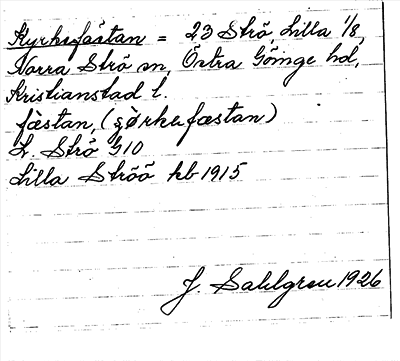 Kyrkofästan = 23 Strö, Lilla 1/8,
Norra Strö sn, Östra Göinge hd,
Kristianstad l.
fæstan, (çørkufæstan)
L. Strö G10
Lilla Ströö kb 1915
J. Sahlgren 1926